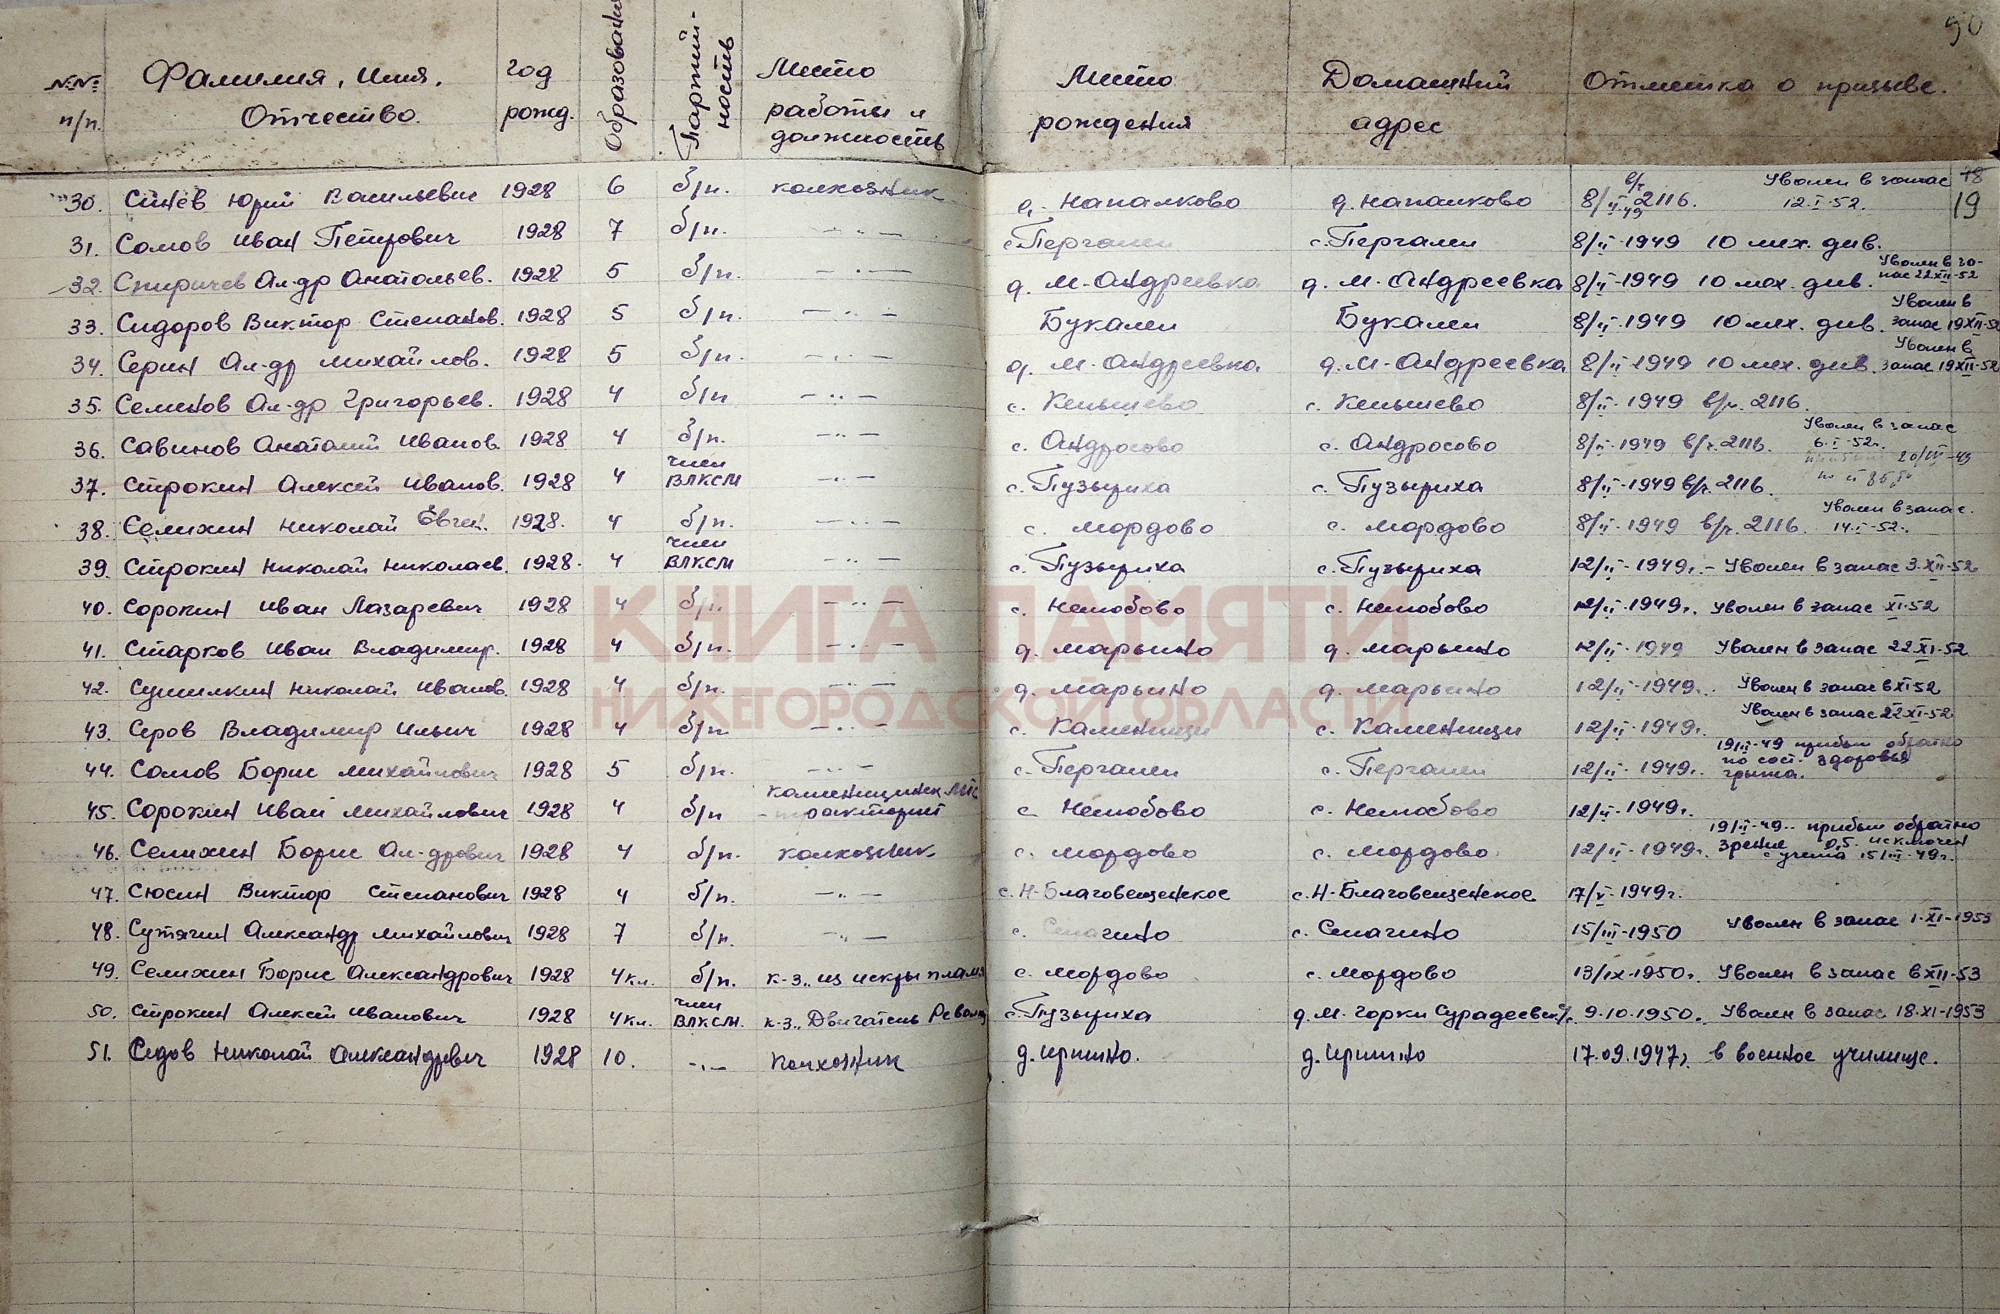 90
№№ п/п. Фамилия, Имя, Отчество. год рожд. Образование Партийность Место работы и должность Место рождения Домашний адрес Отметка о призыве.
30. Синёв Юрий Васильевич 1928 6 б/п. колхозник д. Напалково д. Напалково 8/II-49 в/ч 2116. Уволен в запас 12.I-52. 18 19
31. Сомов Иван Петрович 1928 7 б/п. — „ — с. Пергалеи с. Пергалеи 8/II-1949 10 мех. див.
32. Спиричев Ал-др Анатольев. 1928 5 б/п. — „ — д. М-Андреевка д. М-Андреевка 8/II-1949 10 мех. див. Уволен в запас 22 XII-52
33. Сидоров Виктор Степанов. 1928 5 б/п. — „ — Букалеи Букалеи 8/II-1949 10 мех. див. Уволен в запас 19 XII-52
34. Серин Ал-др Михайлов. 1928 5 б/п. — „ — д. М-Андреевка д. М-Андреевка 8/II-1949 10 мех. див. Уволен в запас 19 XII-52
35. Семенов Ал-др Григорьев. 1928 4 б/п — „ — с. Кеньшево с. Кеньшево 8/II-1949 в/ч. 2116.
36. Савинов Анатолий Иванов. 1928 4 б/п. — „ — с. Андросово с. Андросово 8/II-1949 в/ч. 2116. Уволен в запас 6.I-52г.
37. Строкин Алексей Иванов. 1928 4 член ВЛКСМ — „ — с. Пузыриха с. Пузыриха 8/II-1949 в/ч. 2116.
38. Селихин Николай Евген. 1928. 4 б/п. — „ — с. Мордово с. Мордово 8/II-1949 в/ч. 2116. Уволен в запас. 14.I-52.
39. Строкин Николай Николаев. 1928. 4 член ВЛКСМ — „ — с. Пузыриха с. Пузыриха 12/II-1949г. - Уволен в запас 3.XII-52
40. Сорокин Иван Лазаревич 1928 4 б/п. — „ — с. Немобово с. Немобово 12/II-1949г. Уволен в запас XI-52
41. Старков Иван Владимир. 1928 4 б/п. — „ — д. Марьино д. Марьино 12/II-1949 Уволен в запас 22 XI-52
42. Сушилкин Николай Иванов. 1928 4 б/п. — „ — д. Марьино д. Марьино 12/II-1949г. Уволен в запас в XI-52
43. Серов Владимир Ильич 1928 4 б/п. — „ — с. Каменищи с. Каменищи 12/II-1949г. Уволен в запас 22 XI-52
44. Сомов Борис Михайлович 1928 5 б/п. — „ — с. Пергалеи с. Пергалеи 12/II-1949г. 19/II-49 прибыл обратно по сост. здоровья грыжа.
45. Сорокин Иван Михайлович 1928 4 б/п тракторист с. Немобово с. Немобово 12/II-1949г.
46. Селихин Борис Ал-дрович 1928 4 б/п. колхозник с. Мордово с. Мордово 12/II-1949г. 19/II-49.. прибыл обратно зрение 0,5. исключен с учета 15/III-49г.
47. Сюсин Виктор Степанович 1928 4 б/п. — „ — с. Н-Благовещенское с. Н-Благовещенское 17/V-1949г.
48. Сутягин Александр Михайлович 1928 7 б/п. — „ — с. Спагино с. Спагино 15/III-1950 Уволен в запас 1-XI-1953
49. Селихин Борис Александрович 1928 4кл. б/п. к-з „из искры пламя с. Мордово с. Мордово 13/IX-1950г. Уволен в запас в XII-53
50. Строкин Алексей Иванович 1928 4кл. член ВЛКСМ. к-з „Двигатель Револ с. Пузыриха д. М. Горки Сурадеевск. 9.10.1950г. Уволен в запас 18.XI-1953
51. Седов Николай Александрович 1928 10. -„- колхозник д. Иршино. д. Иршино 17.09.1947г. в военное училище.
КНИГА ПАМЯТИ
НИЖЕГОРОДСКОЙ ОБЛАСТИ